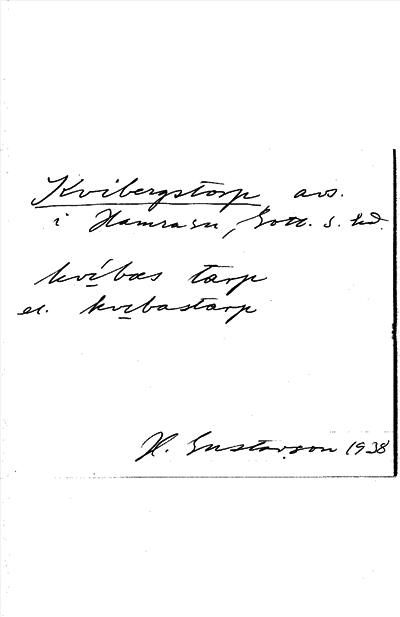 Kvibergstorp, avs.
i Hamra sn, Gotl. s. hd.
kvíbæs tarp
el. kvibastarp
H. Gustavson 1938